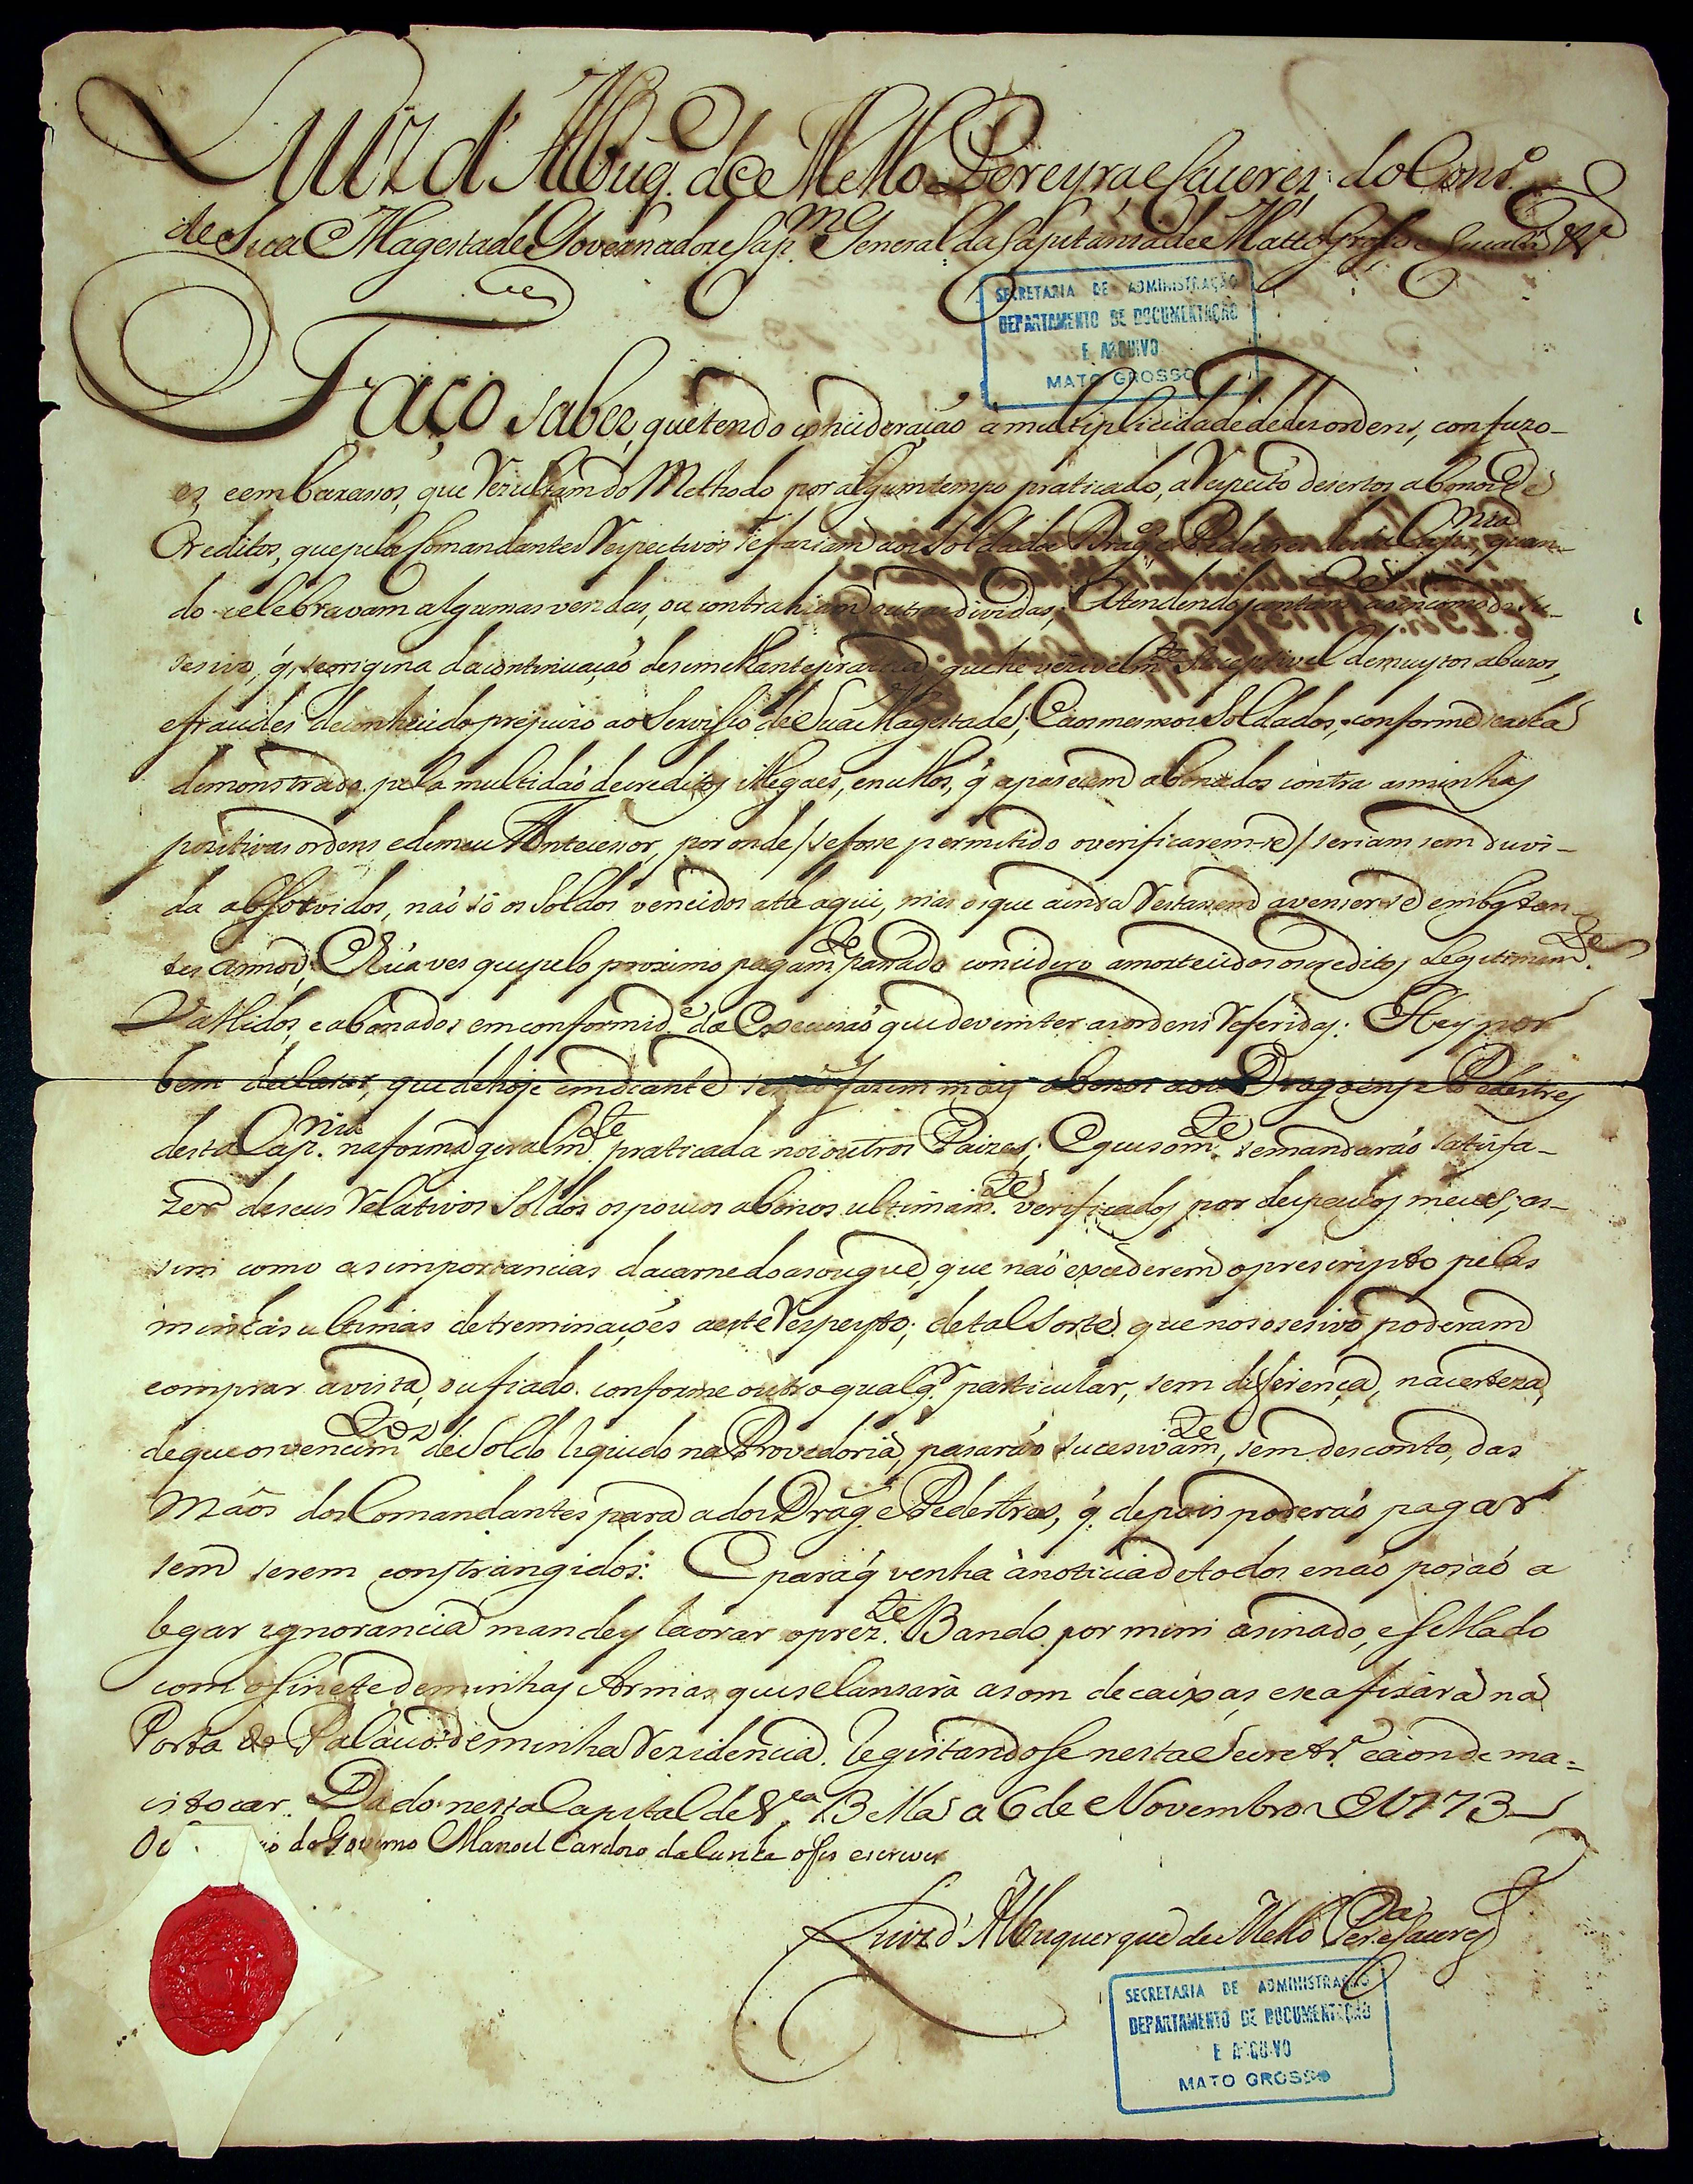 Luiz d' Albuq. de Mello Pereyra, e Caceres, do Cons.º
de Sua Magestade Governador e Cap.m General da Capitania de Matto Grosso e Cuyabá &.ª
SECRETARIA DE ADMINISTRAÇÃO
DEPARTAMENTO DE DOCUMENTAÇÃO
E ARQUIVO
MATO GROSSO
Faço saber, que tendo conciderasaõ à multiplicidade de dezordens, confuzo-
es, e embarasos, que rezultam do Methodo por algum tempo praticado, a respeito de sertos abonos de
Creditos, que pelos Comandantes respectivos se faziam aos Soldados Drag.es e Pedestres desta Cap.nia, quan-
do celebravam algumas vendas, ou contrahiam outras dividas; Atendendo juntam.te ao incomodo su-
sesivo, q̃ se origina da continuaçaõ de semelhante pratica, que he vezivelm.te suceptivel de muytos abuzos,
e fraudes de conhecido prejuizo ao Servisso de Sua Magestade, E aos mesmos Soldados, conforme se acha
demonstrado pela multidaõ de creditos illegaes, e nullos, q̃ aparecem abonados contra as minhas
pozitivas ordens e de meu Antecessor, por onde / se fose permitido o verificarem-se / seriam sem duvi-
da absorvidos, naõ só os Soldos vencidos athe aqui, mas os que ainda restasem a venser-se em bastan-
tes annos; E húa ves que pelo proximo pagam.to pasado concidero amortecidos os creditos legitimam.te
vallidos, e abonados em conformid.e da Execusaõ que devem ter as ordens referidas: Hey por
bem declarar, que de hoje em diante se naõ fazem mais abonos aos Dragoens e Pedestres
desta Cap.nia na forma geralm.te praticada nos outros Paizes; E que som.te se mandaraõ satisfa-
zer de seus relativos Soldos os poucos abonos ultimam.te verificados por despachos meus, as-
sim como as importancias da carne do asougue, que naõ excederem o prescripto pelas
minhas ultimas detreminações a este respeyto; de tal sorte que no sosesivo poderam
comprar a vista, ou fiado conforme outro qualq.r particular, sem diferença, na certeza,
de que os vencim.tos de Soldo liquido na Provedoria, pasaraõ sucesivam.te, sem desconto, das
Maõs dos Comandantes para a dos Drag.es e Pedestres, q̃ depois poderaõ pagar
sem serem constrangidos: E para q̃ venha à noticia de todos e naõ posaõ a
legar ignorancia mandey lavrar o prez.te Bando por mim asinado, e sellado
com o sinete de minhas Armas, que se lansará a som de caixas, e se afixará na
Porta do Palacio de minha rezidencia. registandose nesta Secretr.ª e aonde ma=
is tocar. Dado nesta Capital de V.ª Bella a 6 de Novembro de 1773
do Governo Manoel Cardozo da Cunha o fis escrever
Luiz d' Albuquerque de Mello Per.ª e Caceres
SECRETARIA DE ADMINISTRAÇÃO
DEPARTAMENTO DE DOCUMENTAÇÃO
E ARQUIVO
MATO GROSSO